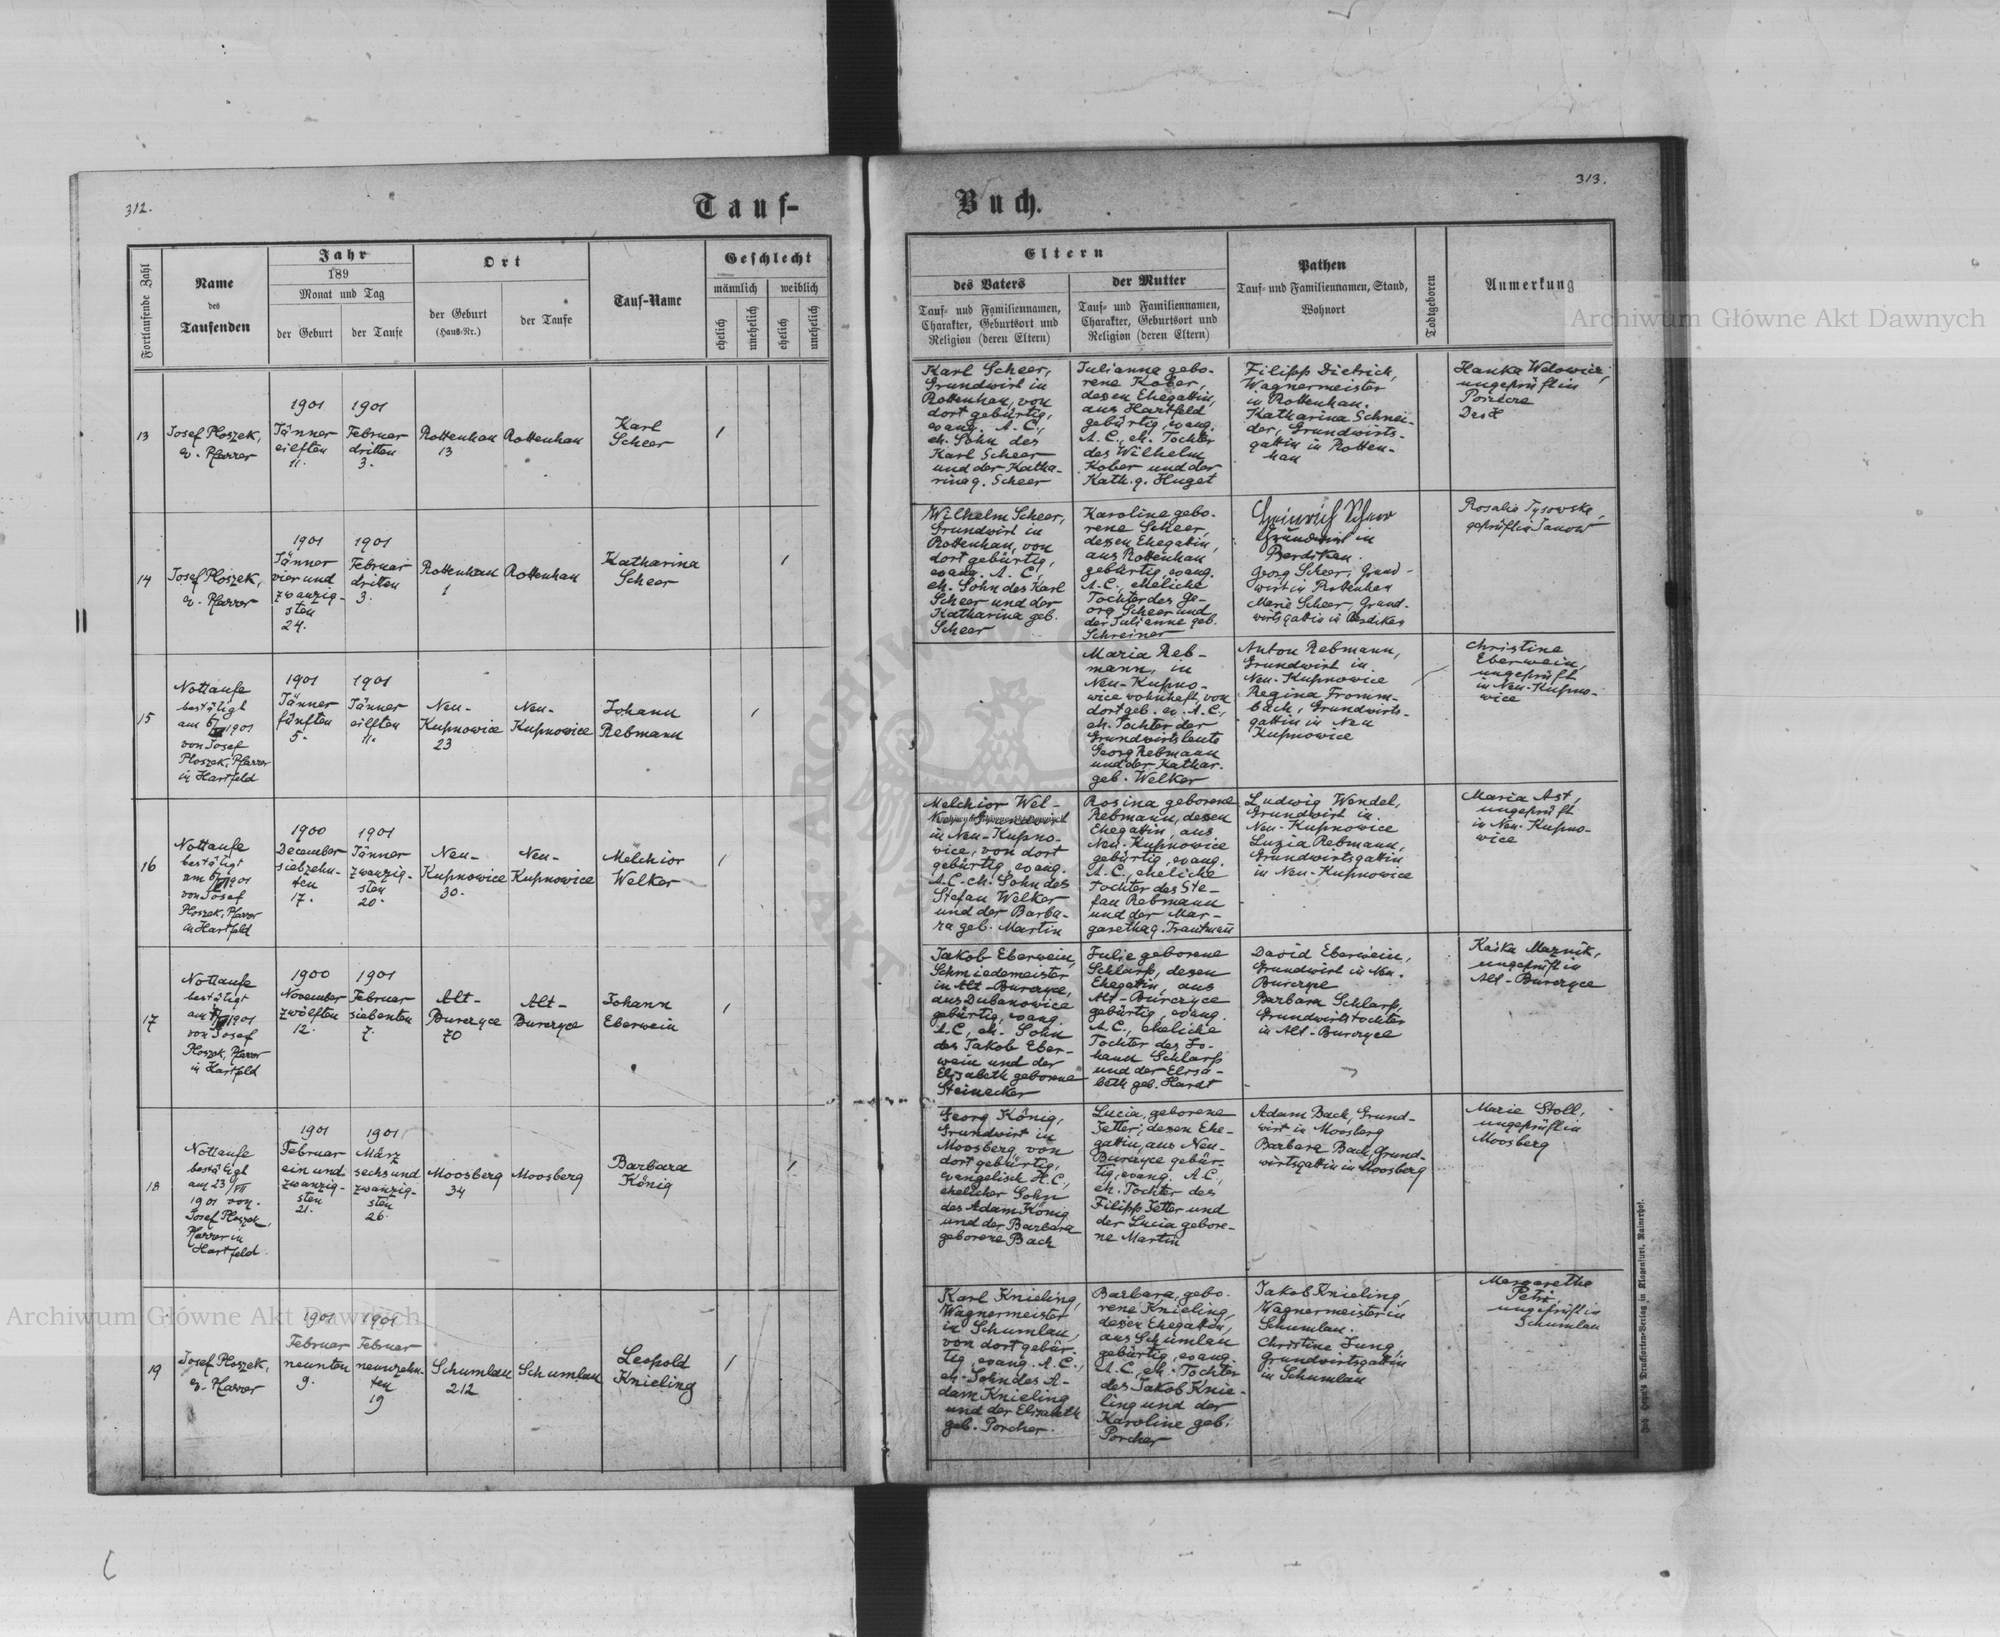 312.
Tauf-
Buch.
313.
Fortlaufende Zahl
Name
des
Taufenden
Jahr
189
Monat und Tag
der Geburt
der Taufe
Ort
der Geburt
(Haus-Nr.)
der Taufe
Tauf-Name
Geschlecht
männlich
weiblich
ehelich
unehelich
ehelich
unehelich
Eltern
des Vaters
Tauf- und Familiennamen,
Charakter, Geburtsort und
Religion (deren Eltern)
der Mutter
Tauf- und Familiennamen,
Charakter, Geburtsort und
Religion (deren Eltern)
Pathen
Tauf- und Familiennamen, Stand,
Wohnort
Todtgeboren
Anmerkung
Archiwum Główne Akt Dawnych
13
Josef Ploszek,
ev. Pfarrer
1901
Jänner
eilften
11.
1901
Februar
dritten
3.
Rottenhan
13
Rottenhan
Karl
Scheer
1
Karl Scheer,
Grundwirt in
Rottenhan, von
dort gebürtig,
evang. A. C.,
eh. Sohn des
Karl Scheer
und der Katha-
rina g. Scheer
Julianna gebo-
rene Kober,
dessen Ehegattin,
aus Hartfeld
gebürtig, evang.
A. C., eh. Tochter
des Wilhelm
Kober und der
Kath. g. Huget
Filipp Dietrich,
Wagnermeister
in Rottenhan.
Katharina Schnei-
der, Grundwirts-
gattin in Rotten-
han
Hanka
ungeprüft in
14
Josef Ploszek,
ev. Pfarrer
1901
Jänner
vier und
zwanzig-
sten
24.
1901
Februar
dritten
3.
Rottenhan
1
Rottenhan
Katharina
Scheer
1
Wilhelm Scheer,
Grundwirt in
Rottenhan, von
dort gebürtig,
evang. A. C.,
eh. Sohn des Karl
Scheer und der
Katharina geb.
Scheer
Karoline gebo-
rene Scheer,
dessen Ehegattin,
aus Rottenhan
gebürtig, evang.
A. C., eheliche
Tochter des Ge-
org Scheer und
der Julianne geb.
Schreiner
Heinrich Scheer
Grundwirt in
Berdikau.
Georg Scheer, Grund-
wirt in Rottenhan
Marie Scheer, Grund-
wirtsgattin in Berdikau
Rosalie Tysowska,
geprüft in Janow
15
Nottaufe
bestätigt
am
1901
von Josef
Ploszek, Pfarrer
in Hartfeld
1901
Jänner
fünften
5.
1901
Jänner
eilften
11.
Neu-
Kupnowice
23
Neu-
Kupnowice
Johann
Rebmann
1
Maria Reb-
mann, in
Neu-Kupno-
wice wohnhaft, von
dort geb. ev. A. C.,
eh. Tochter der
Grundwirtsleute
Georg Rebmann
und der Kathar.
geb. Welker
Anton Rebmann,
Grundwirt in
Neu-Kupnowice
Regina Fromm-
bach, Grundwirts-
gattin in Neu
Kupnowice
Christine
Eberwein,
ungeprüft
in Neu-Kupno-
wice
16
Nottaufe
bestätigt
am
1901
von Josef
Ploszek, Pfarrer
in Hartfeld
1900
December
siebzehn-
ten
17.
1901
Jänner
zwanzig-
sten
20.
Neu-
Kupnowice
30.
Neu-
Kupnowice
Melchior
Welker
1
Melchior Wel-
ker, Grundwirt
in Neu-Kupno-
wice, von dort
gebürtig, evang.
A. C. eh. Sohn des
Stefan Welker
und der Barba-
ra geb. Martin
Rosina geborene
Rebmann, dessen
Ehegattin, aus
Neu-Kupnowice
gebürtig, evang.
A. C., eheliche
Tochter des Ste-
fan Rebmann
und der Mar-
garetha g. Trautmann
Ludwig Wendel,
Grundwirt in
Neu-Kupnowice
Luzia Rebmann,
Grundwirtsgattin
in Neu-Kupnowice
Maria Ast,
ungeprüft
in Neu-Kupno-
wice
17
Nottaufe
bestätigt
am
1901
von Josef
Ploszek, Pfarrer
in Hartfeld
1900
November
zwölften
12.
1901
Februar
siebenten
7.
Alt-
Burczyce
70
Alt-
Burczyce
Johann
Eberwein
1
Jakob Eberwein,
Schmiedemeister
in Alt-Burczyce,
aus Dubanowice
gebürtig, evang.
A. C., eh. Sohn
des Jakob Eber-
wein und der
Elisabeth geborene
Steinecker
Julie geborene
Schlarp, dessen
Ehegattin, aus
Alt-Burczyce
gebürtig, evang.
A. C., eheliche
Tochter des Jo-
hann Schlarp
und der Elisa-
beth geb. Hardt
David Eberwein,
Grundwirt in Neu-
Burczyce
Barbara Schlarp,
Grundwirtstochter
in Alt-Burczyce
Kaśka Maznik,
ungeprüft in
Alt-Burczyce
18
Nottaufe
bestätigt
am 23/VII
1901 von
Josef Ploszek,
Pfarrer in
Hartfeld
1901
Februar
ein und
zwanzig-
sten
21.
1901
März
sechs und
zwanzig-
sten
26.
Moosberg
34
Moosberg
Barbara
König
1
Georg König,
Grundwirt in
Moosberg, von
dort gebürtig,
evangelisch H. C.,
ehelicher Sohn
des Adam König
und der Barbara
geborene Bach
Lucia, geborene
Jetter, dessen Ehe-
gattin, aus Neu-
Burczyce gebür-
tig, evang. A. C.,
eh. Tochter des
Filipp Jetter und
der Lucia gebore-
ne Martin
Adam Bach, Grund-
wirt in Moosberg
Barbara Bach, Grund-
wirtsgattin in Moosberg
Marie Stoll,
ungeprüft in
Moosberg
19
Josef Ploszek,
ev. Pfarrer
1901
Februar
neunten
9.
1901
Februar
neunzehn-
ten
19
Schumlau
212
Schumlau
Leopold
Knieling
1
Karl Knieling,
Wagnermeister
in Schumlau,
von dort gebür-
tig, evang. A. C.,
eh. Sohn des A-
dam Knieling
und der Elisabeth
geb. Porcher.
Barbara, gebo-
rene Knieling,
dessen Ehegattin,
aus Schumlau
gebürtig, evang.
A. C., eh. Tochter
des Jakob Knie-
ling und der
Karoline geb.
Porcher
Jakob Knieling,
Wagnermeister in
Schumlau.
Christine Jung,
Grundwirtsgattin
in Schumlau
Margaretha
Petri,
ungeprüft in
Schumlau
Archiwum Główne Akt Dawnych